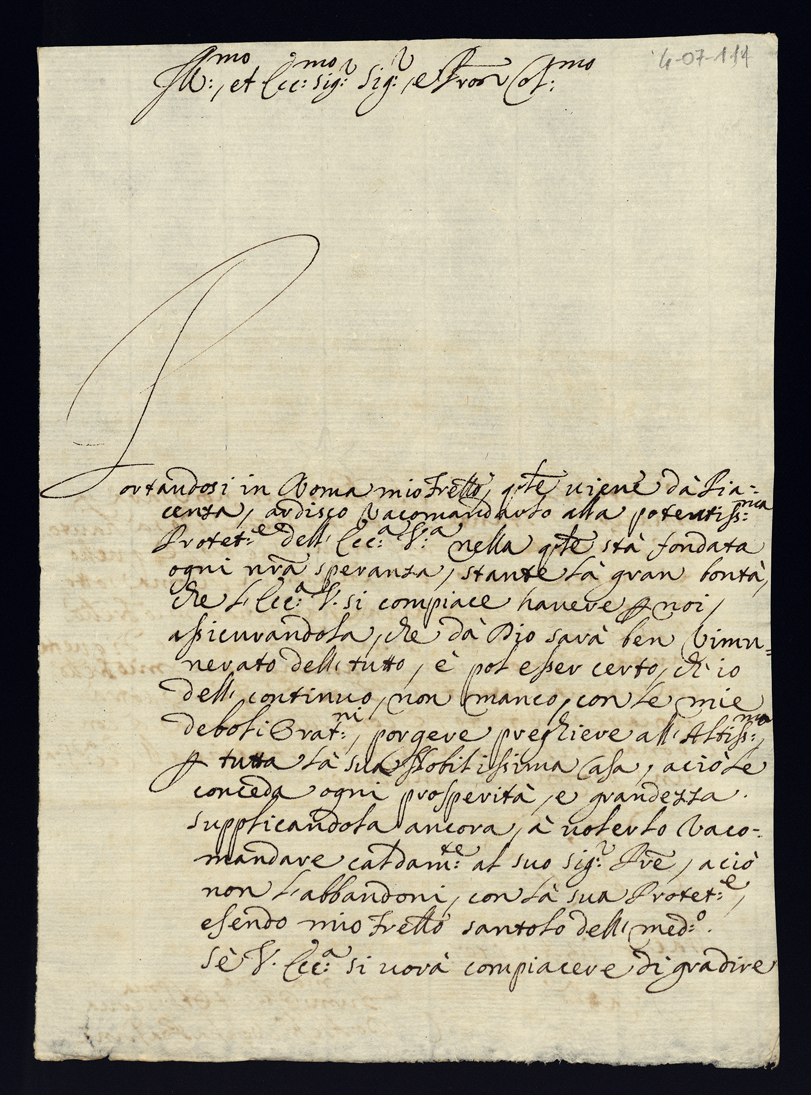 4-07-114
Ill.mo: et Ecc:mo Sig.r Sig.r, e Pron Col:mo
Portandosi in Roma mio Frello, qte uiene dà Pia=
cenza, ardisco racomandarlo alla potentiss:ma
Protet:e dell Ecc:a V:a nella qte stà fondata
ogni nrã speranza, stante là gran bontà,
che L Ecc:a V. si compiace havere p noi,
assicurandola, che dà Dio sarà ben rimu=
nerato dell tutto, è pol esser certo, ch io
dell continuo, non manco, con le mie
deboli Orat:ni, porgere preghiere all Altiss:mo,
p tutta là sua Nobilissima Casa, aciò le
conceda ogni prosperità, e grandezza.
supplicandola ancora, à volerlo raco=
mandare caldam:te al suo sig:r Pre, aciò
non l abbandoni, con là sua Protet:e,
esendo mio Frello santolo dell med:o.
Sè V. Ecc:a si uorà compiacere di gradire